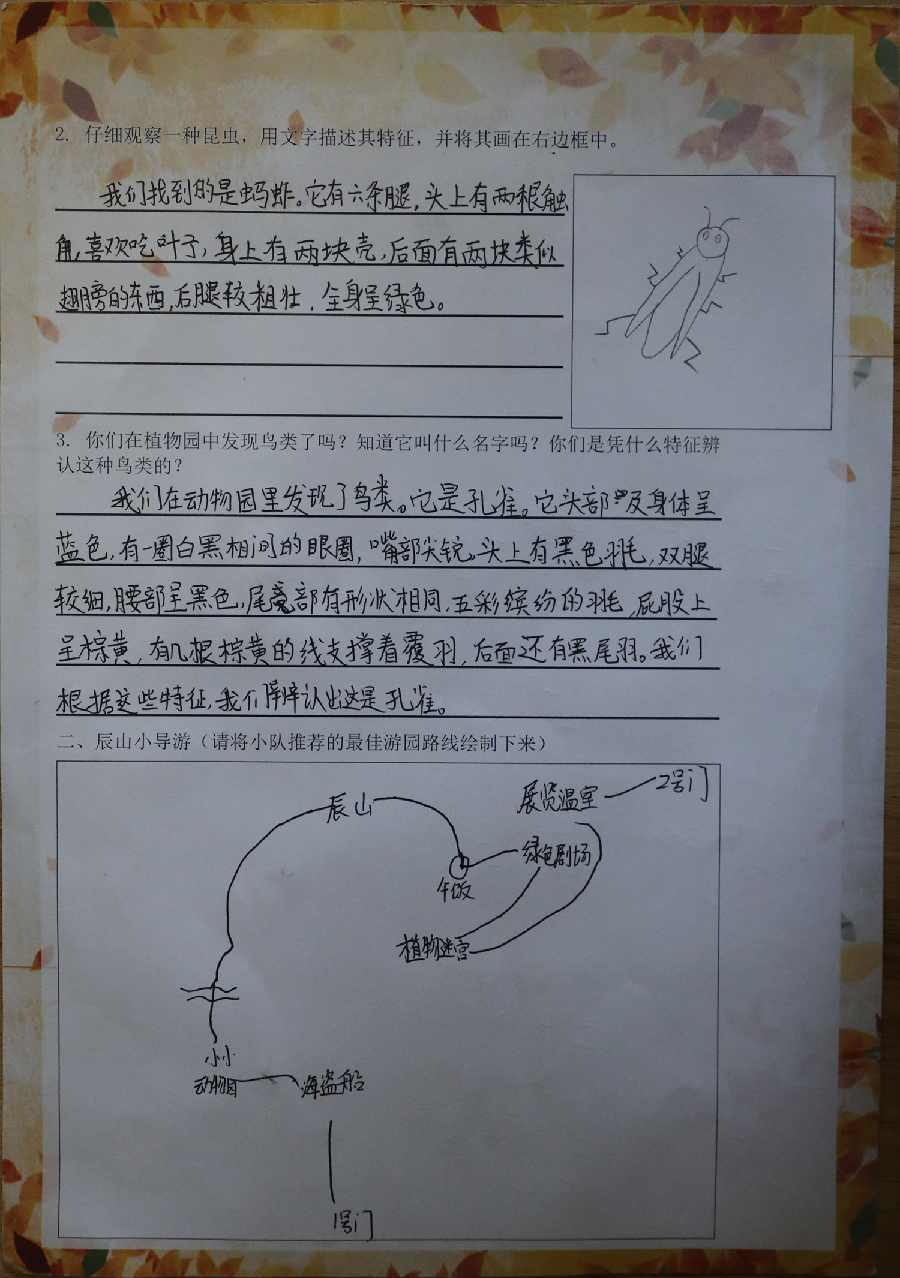 2. 仔细观察一种昆虫，用文字描述其特征，并将其画在右边框中。
我们找到的是蚂蚱。它有六条腿，头上有两根触
角，喜欢吃叶子，身上有两块壳，后面有两块类似
翅膀的东西，后腿较粗壮，全身呈绿色。
3. 你们在植物园中发现鸟类了吗？知道它叫什么名字吗？你们是凭什么特征辨
认这种鸟类的？
我们在动物园里发现了鸟类。它是孔雀。它头部及身体呈
蓝色，有一圈白黑相间的眼圈，嘴部尖锐。头上有黑色羽毛，双腿
较细，腰部呈黑色，尾部有形状相同，五彩缤纷的羽毛，屁股上
呈棕黄，有几根棕黄的线支撑着覆羽，后面还有黑尾羽。我们
根据这些特征，我们辨认出这是孔雀。
二、辰山小导游（请将小队推荐的最佳游园路线绘制下来）
展览温室
2号门
辰山
绿色剧场
午饭
植物迷宫
小小
动物园
海盗船
1号门